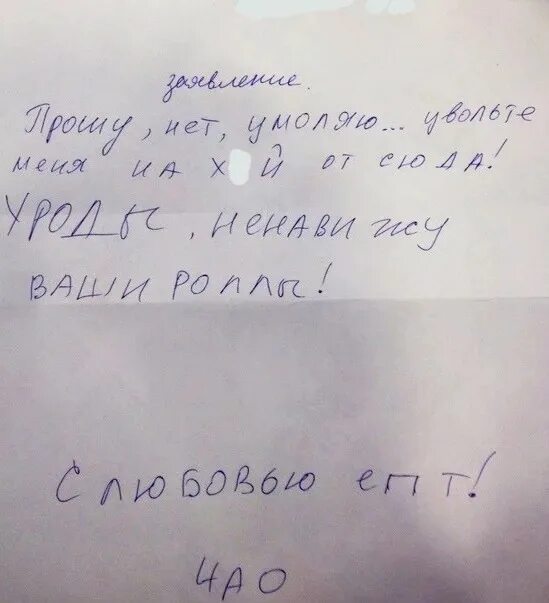 заявление.
Прошу, нет, умоляю... увольте
меня на х й от сюда!
УРОДЫ, ненавижу
ваши роллы!
С любовью епт!
ЧАО